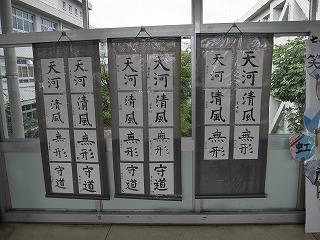 天河
清風
無形
守道
天河
清風
無形
守道
天河
清風
無形
守道
天河
清風
無形
守道
天河
清風
無形
天河
清風
無形
笑
虹